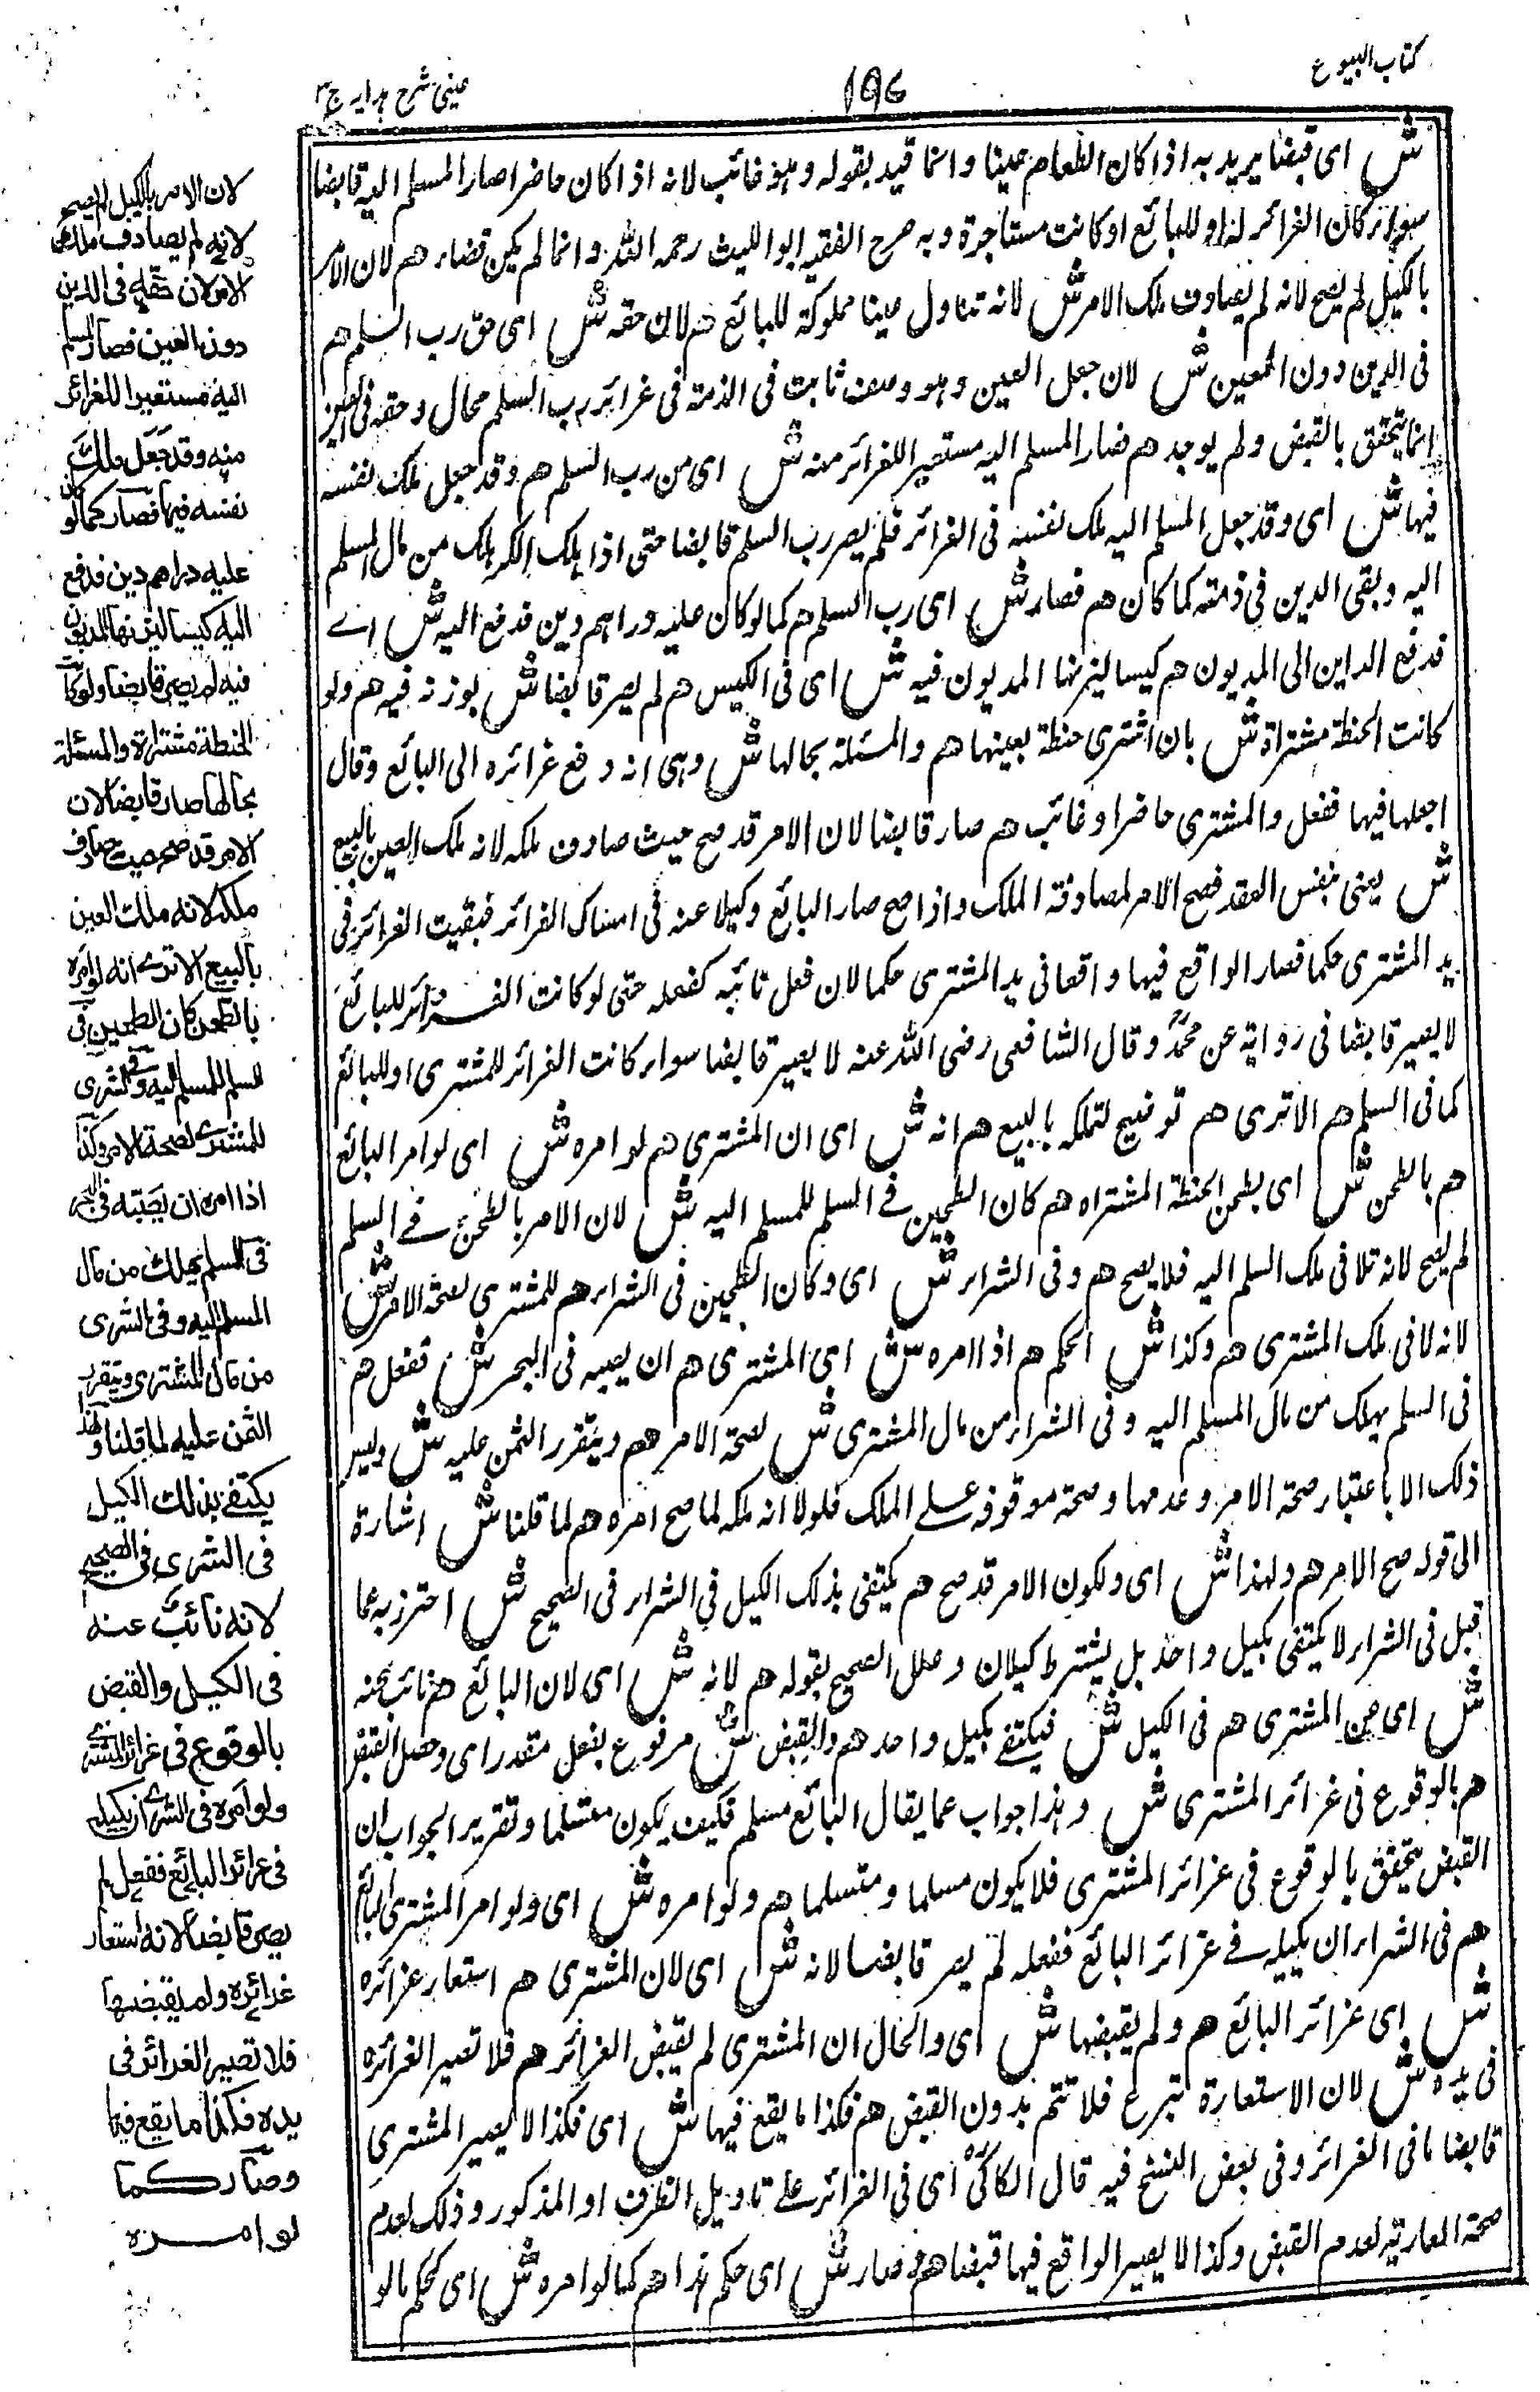 كتاب البيوع
١٩٦
عينى شرح هدايه ج٣
ش اى قبضا يريد به اذا كان الطعام عينا وانما قيد بقوله وهو غائب لانه اذا كان حاضرا صار المسلم اليه قابضا
سواء كان الغرائر له او للبائع او كانت مستاجرة وبه صرح الفقيه ابو الليث رحمه الله وانما لم يكن قضاء هم لان الامر
بالكيل لم يصح لانه لم يصادف ملك الامر ش لانه تناول عينا مملوكة للبائع هم لان حقه ش اى حق رب السلم هم
فى الدين دون المعين ش لان جعل العين وهو وصف ثابت فى الذمة فى غرائر رب السلم محال وحقه فى العين
انما يتحقق بالقبض ولم يوجد هم فصار المسلم اليه مستعير اللغرائر منه ش اى من رب السلم هم وقد جعل ملك نفسه
فيها ش اى وقد جعل المسلم اليه ملك نفسه فى الغرائر فلم يصر رب السلم قابضا حتى اذا هلك الكر هلك من مال المسلم
اليه وبقى الدين فى ذمته كما كان هم فصار ش اى رب السلم هم كما لو كان عليه دراهم دين فدفع اليه ش اے
فدفع الداين الى المديون هم كيسا ليزنها المديون فيه ش اى فى الكيس هم لم يصر قابضا ش بوزنه فيه هم ولو
كانت الحنطة مشتراة ش بان اشترى حنطة بعينها هم والمسئلة بحالها ش وهى انه دفع غرائره الى البائع وقال
اجعلها فيها ففعل والمشترى حاضر او غائب هم صار قابضا لان الامر قد صح حيث صادف ملكه لانه ملك العين بالبيع
ش يعنى بنفس العقد فصح الامر لمصادفة الملك واذا صح صار البائع وكيلا عنه فى امساك الغرائر فبقيت الغرائر فى
يد المشترى حكما فصار الواقع فيها واقعا فى يد المشترى حكما لان فعل نائبه كفعله حتى لو كانت الغرائر للبائع
لا يصير قابضا فى رواية عن محمد وقال الشافعى رضى الله عنه لا يصير قابضا سواء كانت الغرائر للمشترى او للبائع
كما فى السلم هم الا ترى هم توضيح لتملكه بالبيع هم انه ش اى ان المشترى هم لو امره ش اى لو امر البائع
هم بالطحن ش اى بطحن الحنطة المشتراه هم كان الطحين فے السلم للمسلم اليه ش لان الامر بالطحن فے السلم
لم يصح لانه تلافى ملك السلم اليه فلا يصح هم وفى الشراء ش اى وكان الطحين فى الشراء هم للمشترى لصحة الامر ش
لانه لاقى ملك المشترى هم وكذا ش الحكم هم اذا امره ش اى المشترى هم ان يصبه فى البحر ش ففعل هم
فى السلم يهلك من مال المسلم اليه وفى الشراء من مال المشترى ش لصحة الامر هم ويتقرر الثمن عليه ش وليس
ذلك الا باعتبار صحة الامر وعدمها وصحة موقوفه علے الملك فلولا انه ملكه لما صح امره هم لما قلنا ش اشارة
الى قوله صح الامر هم ولهذا ش اى ولكون الامر قد صح هم يكتفى بذلك الكيل فى الشراء فى الصحيح ش احترز به عما
قيل فى الشراء لا يكتفى بكيل واحد بل يشترط كيلان وعلل الصحيح بقوله هم لانه ش اى لان البائع هم نائب عنه
ش اى عن المشترى هم فى الكيل ش فيكتفے بكيل واحد هم والقبض ش مرفوع بفعل مقدر اى وحصل القبض
هم بالوقوع فى غرائر المشترى ش وهذا جواب عما يقال البائع مسلم فكيف يكون متسلما وتقرير الجواب ان
القبض يتحقق بالوقوع فى غرائر المشترى فلا يكون مسلما ومتسلما هم ولو امره ش اى ولو امر المشترى البائع
هم فى الشراء ان يكيله فے غرائر البائع ففعله لم يصر قابضا لانه ش اى لان المشترى هم استعار غرائره
ش اى غرائر البائع هم ولم يقبضها ش اى والحال ان المشترى لم يقبض الغرائر هم فلا تصير الغرائره
فى يده ش لان الاستعارة تبرع فلا تتم بدون القبض هم فكذا ما يقع فيها ش اى فكذا لا يصير المشترى
قابضا ما فى الغرائر وفى بعض النسخ فيه قال الكاكى اى فى الغرائر علے تاويل الظرف او المذكور وذلك لعدم
صحة العارية لعدم القبض وكذا لا يصير الواقع فيها قبضا هم وصار ش اى حكم هذا هم كما لو امره ش اى كحكم ما لو
لان الامر بالكيل لم يصح
لانه لم يصادف ملك
الامر لان حقه فى الدين
دون العين فصار المسلم
اليه مستعيرا للغرائر
منه وقد جعل ملك
نفسه فيها فصار كما لو كان
عليه دراهم دين فدفع
اليه كيسا ليزنها المديون
فيه لم يصر قابضا ولو كانت
الحنطة مشتراة والمسئلة
بحالها صار قابضا لان
الامر قد صح حيث صادف
ملكه لانه ملك العين
بالبيع الا ترے انه لو امره
بالطحن كان الطحين فى
السلم للمسلم اليه وفى الشرى
للمشترے لصحة الامر وكذا
اذا امره ان يصبه فى البحر
فى السلم يهلك من مال
المسلم اليه وفى الشرى
من مال المشترى ويتقرر
الثمن عليه لما قلنا ولهذا
يكتفے بذلك الكيل
فى الشرى فى الصحيح
لانه نائب عنه
فى الكيل والقبض
بالوقوع فى غرائر المشترے
ولو امره فى الشرے ان يكيله
فى غرائر البائع ففعل لم
يصر قابضا لانه استعار
غرائره ولم يقبضها
فلا تصير الغرائر فى
يده فكذا ما يقع فيها
وصار كما
لو امره